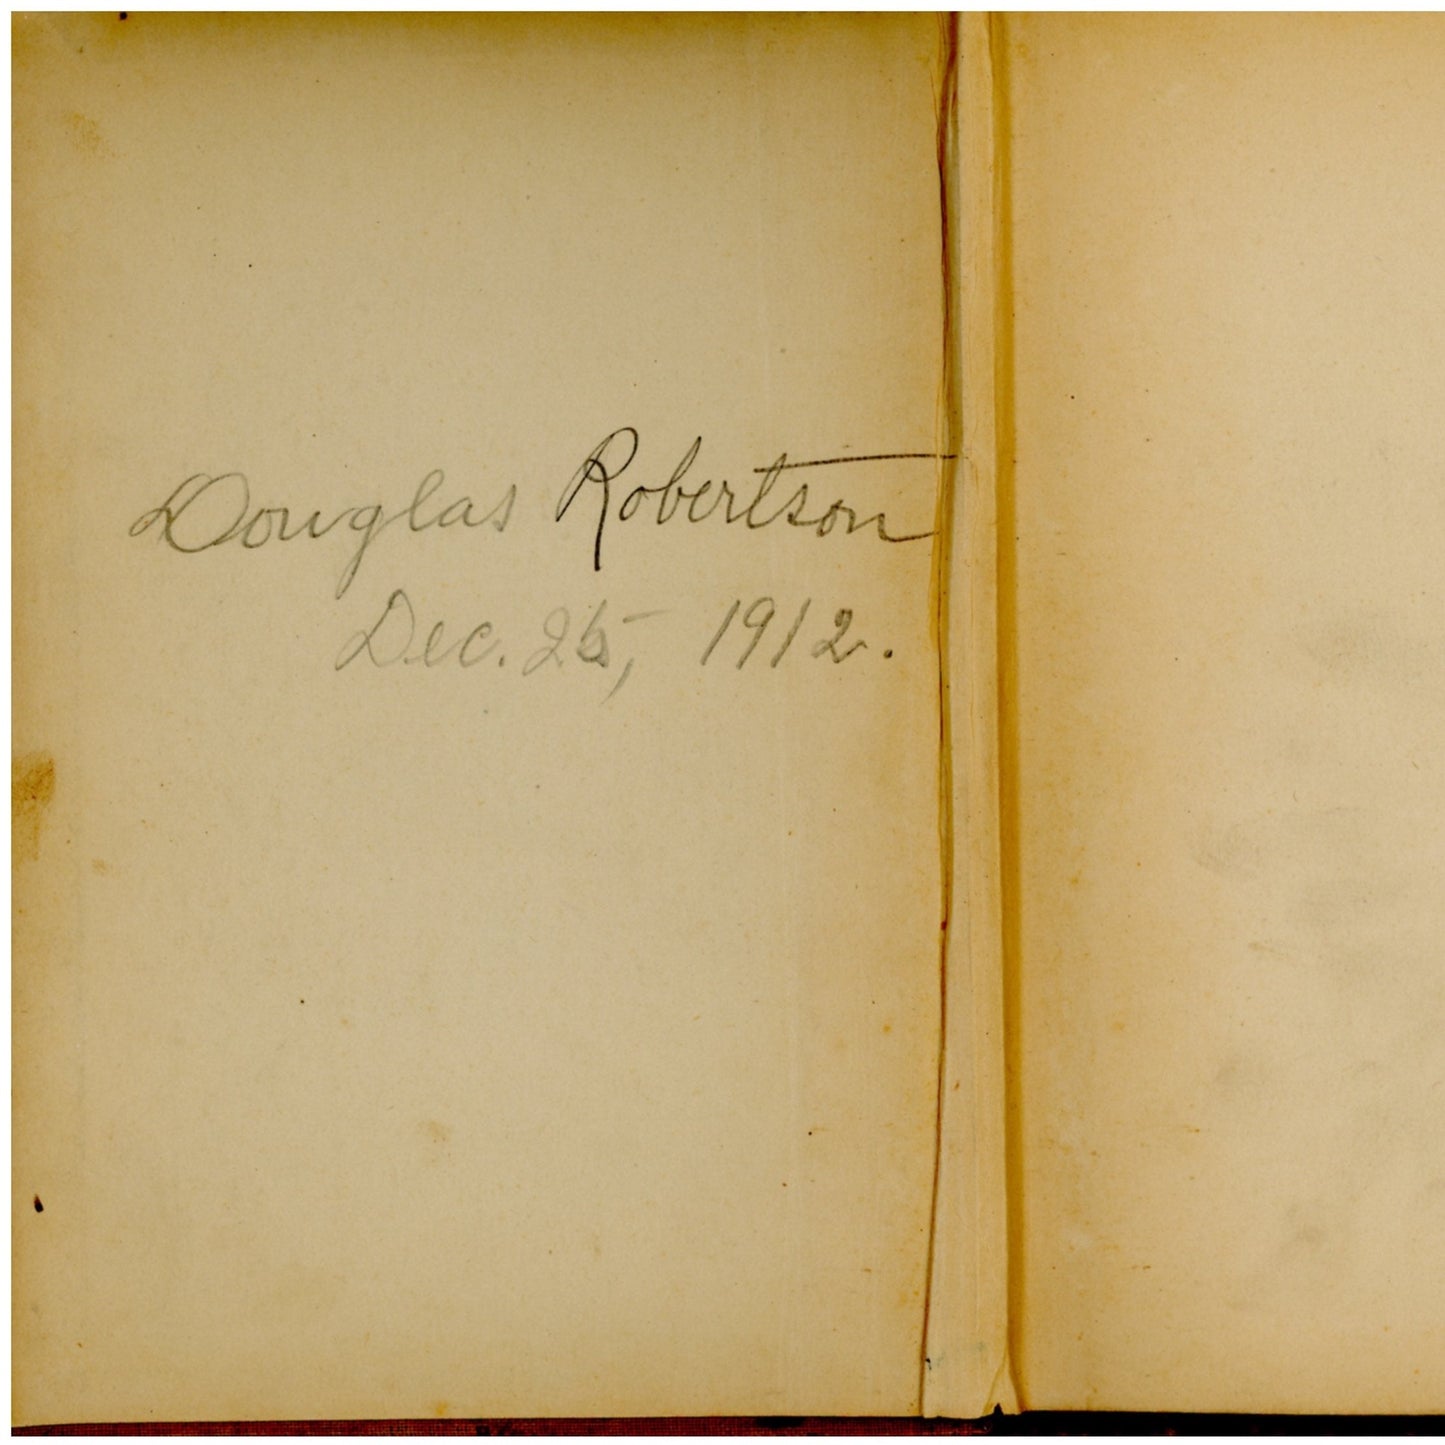 Douglas Robertson
Dec. 25, 1912.